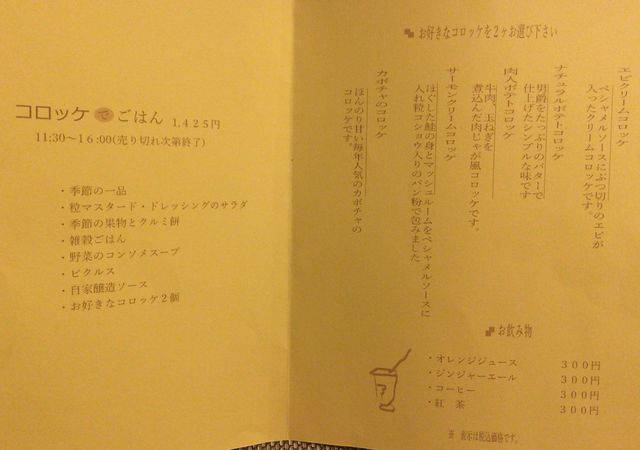 コロッケでごはん 1,425円
11:30～16:00(売り切れ次第終了)
・季節の一品
・粒マスタード・ドレッシングのサラダ
・季節の果物とクルミ餅
・雑穀ごはん
・野菜のコンソメスープ
・ピクルス
・自家醸造ソース
・お好きなコロッケ2個
お好きなコロッケを2ヶお選び下さい
エビクリームコロッケ
ベシャメルソースにぶつ切りのエビが
入ったクリームコロッケです。
ナチュラルポテトコロッケ
男爵をたっぷりのバターで
仕上げたシンプルな味です
肉入ポテトコロッケ
牛肉、玉ねぎを
煮込んだ肉じゃが風コロッケです。
サーモンクリームコロッケ
ほぐした鮭の身とマッシュルームをベシャメルソースに
入れ粒コショウ入りのパン粉で包みました
カボチャのコロッケ
ほんのり甘い毎年人気のカボチャの
コロッケです。
お飲み物
・オレンジジュース 300円
・ジンジャーエール 300円
・コーヒー 300円
・紅 茶 300円
※ 表示は税込価格です。